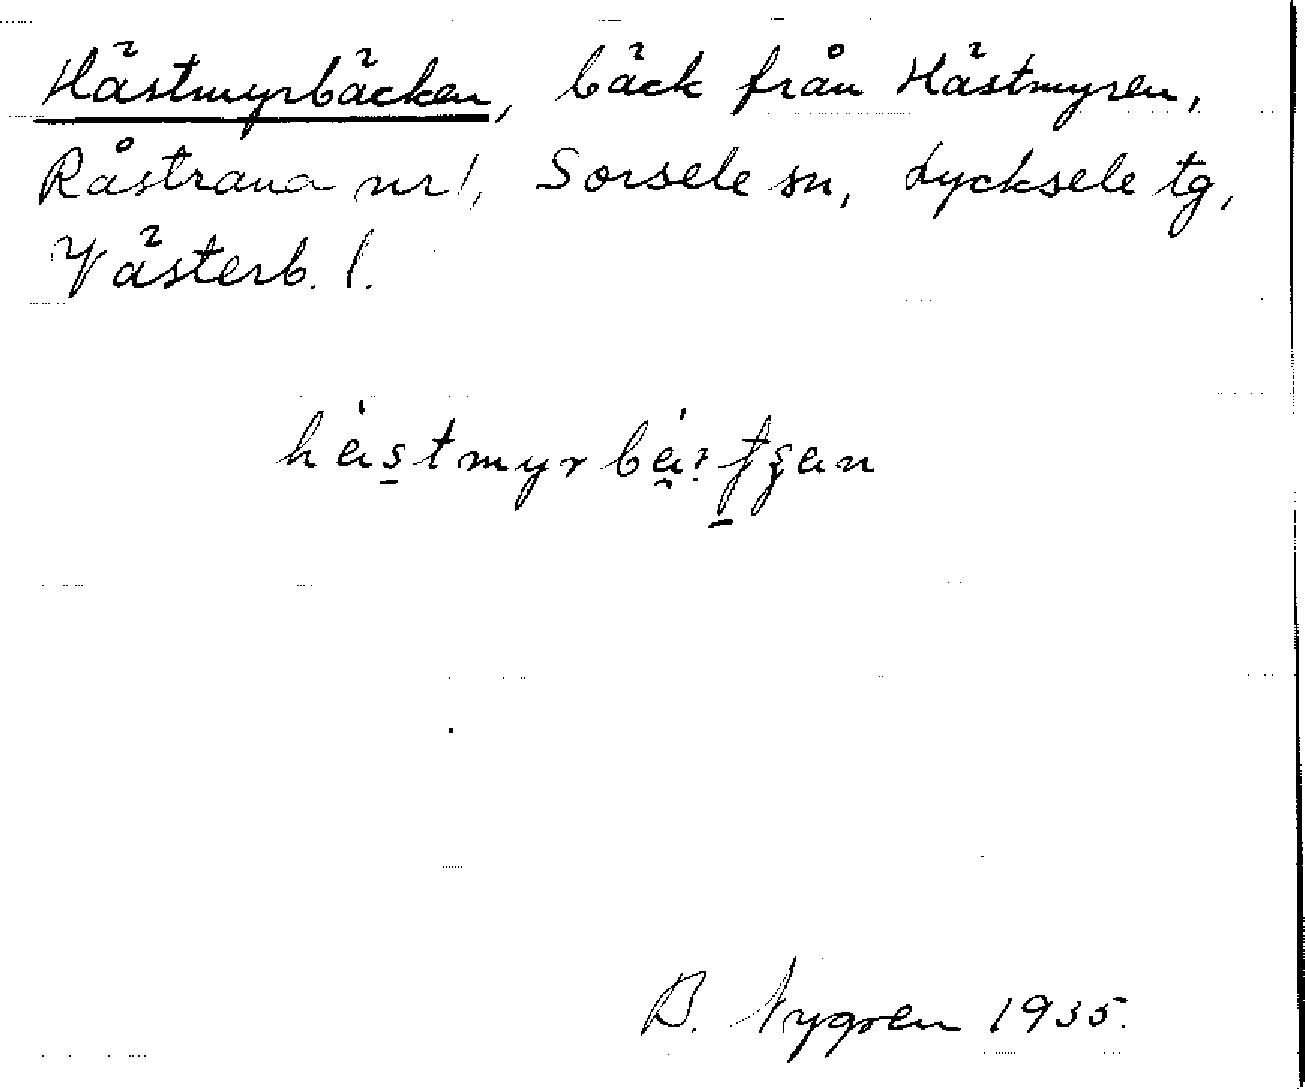 Hästmyrbäcken, bäck från Hästmyren,
Råstrana nr 1, Sorsele sn, Lycksele tg,
Västerb. l.
B. Nygren 1935.